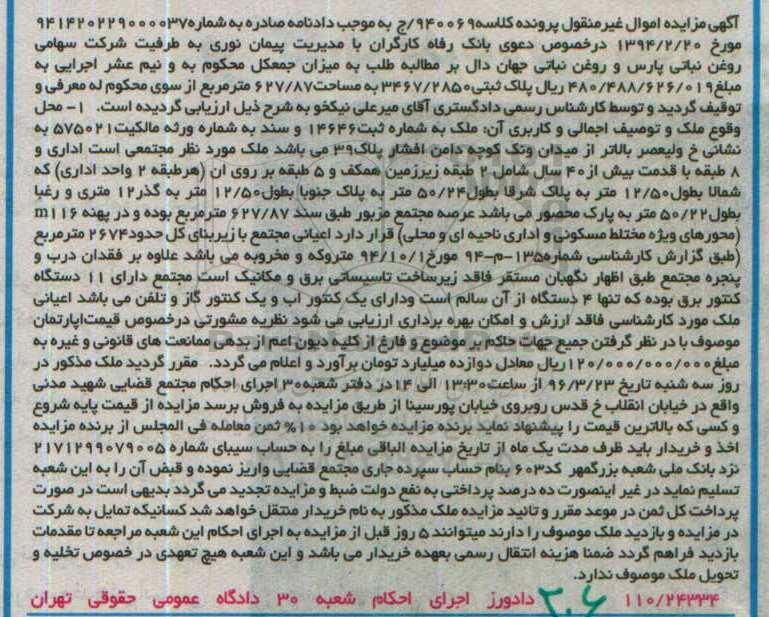 آگهی مزایده اموال غیرمنقول پرونده کلاسه۹۴۰۰۶۹/ج به موجب دادنامه صادره به شماره۹۴۱۴۲۰۲۲۹۰۰۰۰۳۷
مورخ ۱۳۹۴/۲/۲۰ درخصوص دعوی بانک رفاه کارگران با مدیریت پیمان نوری به طرفیت شرکت سهامی
روغن نباتی پارس و روغن نباتی جهان دال بر مطالبه طلب به میزان جمعکل محکوم به و نیم عشر اجرایی به
مبلغ۴۸۰/۴۸۸/۶۲۶/۰۱۹ ریال پلاک ثبتی۳۴۶۷/۲۸۵۰ به مساحت۶۲۷/۸۷ مترمربع از سوی محکوم له معرفی و
توقیف گردید و توسط کارشناس رسمی دادگستری آقای میرعلی نیکخو به شرح ذیل ارزیابی گردیده است. ۱- محل
وقوع ملک و توصیف اجمالی و کاربری آن: ملک به شماره ثبت۱۴۶۴۶ و سند به شماره ورثه مالکیت۵۷۵۰۲۱ به
نشانی خ ولیعصر بالاتر از میدان ونک کوچه دامن افشار پلاک۳۹ می باشد ملک مورد نظر مجتمعی است اداری و
۸ طبقه با قدمت بیش از۴۰ سال شامل ۲ طبقه زیرزمین همکف و ۵ طبقه بر روی آن (هرطبقه ۲ واحد اداری) که
شمالا بطول۱۲/۵۰ متر به پلاک شرقا بطول۵۰/۲۴ متر به پلاک جنوبا بطول۱۲/۵۰ متر به گذر۱۲ متری و غربا
بطول۵۰/۲۲ متر به پارک محصور می باشد عرصه مجتمع مزبور طبق سند ۶۲۷/۸۷ مترمربع بوده و در پهنه m۱۱۶
(محورهای ویژه مختلط مسکونی و اداری ناحیه ای و محلی) قرار دارد اعیانی مجتمع با زیربنای کل حدود۲۶۷۴ مترمربع
(طبق گزارش کارشناسی شماره۱۳۵-م-۹۴ مورخ۹۴/۱۰/۱) متروکه و مخروبه می باشد علاوه بر فقدان درب و
پنجره مجتمع طبق اظهار نگهبان مستقر فاقد زیرساخت تاسیساتی برق و مکانیک است مجتمع دارای ۱۱ دستگاه
کنتور برق بوده که تنها ۴ دستگاه از آن سالم است ودارای یک کنتور اب و یک کنتور گاز و تلفن می باشد اعیانی
ملک مورد کارشناسی فاقد ارزش و امکان بهره برداری ارزیابی می شود نظریه مشورتی درخصوص قیمت‌اپارتمان
موصوف با در نظر گرفتن جمیع جهات حاکم بر موضوع و فارغ از کلیه دیون اعم از بدهی ممانعت های قانونی و غیره به
مبلغ۱۲۰/۰۰۰/۰۰۰/۰۰۰ریال معادل دوازده میلیارد تومان برآورد و اعلام می گردد. مقرر گردید ملک مذکور در
روز سه شنبه تاریخ ۹۶/۳/۲۳ از ساعت۱۳:۳۰ الی ۱۴ در دفتر شعبه۳۰ اجرای احکام مجتمع قضایی شهید مدنی
واقع در خیابان انقلاب خ قدس روبروی خیابان پورسینا از طریق مزایده به فروش برسد مزایده از قیمت پایه شروع
و کسی که بالاترین قیمت را پیشنهاد نماید برنده مزایده خواهد بود ۱۰% ثمن معامله فی المجلس از برنده مزایده
اخذ و خریدار باید ظرف مدت یک ماه از تاریخ مزایده الباقی مبلغ را به حساب سیبای شماره ۲۱۷۱۲۹۹۰۷۹۰۰۵
نزد بانک ملی شعبه بزرگمهر کد۶۰۳ بنام حساب سپرده جاری مجتمع قضایی واریز نموده و قبض آن را به این شعبه
تسلیم نماید در غیر اینصورت ده درصد پرداختی به نفع دولت ضبط و مزایده تجدید می گردد بدیهی است در صورت
پرداخت کل ثمن در موعد مقرر و تائید مزایده ملک مذکور به نام خریدار منتقل خواهد شد کسانیکه تمایل به شرکت
در مزایده و بازدید ملک موصوف را دارند میتوانند ۵ روز قبل از مزایده به اجرای احکام این شعبه مراجعه تا مقدمات
بازدید فراهم گردد ضمنا هزینه انتقال رسمی بعهده خریدار می باشد و این شعبه هیچ تعهدی در خصوص تخلیه و
تحویل ملک موصوف ندارد.
۱۱۰/۲۴۳۳۴ دادورز اجرای احکام شعبه ۳۰ دادگاه عمومی حقوقی تهران